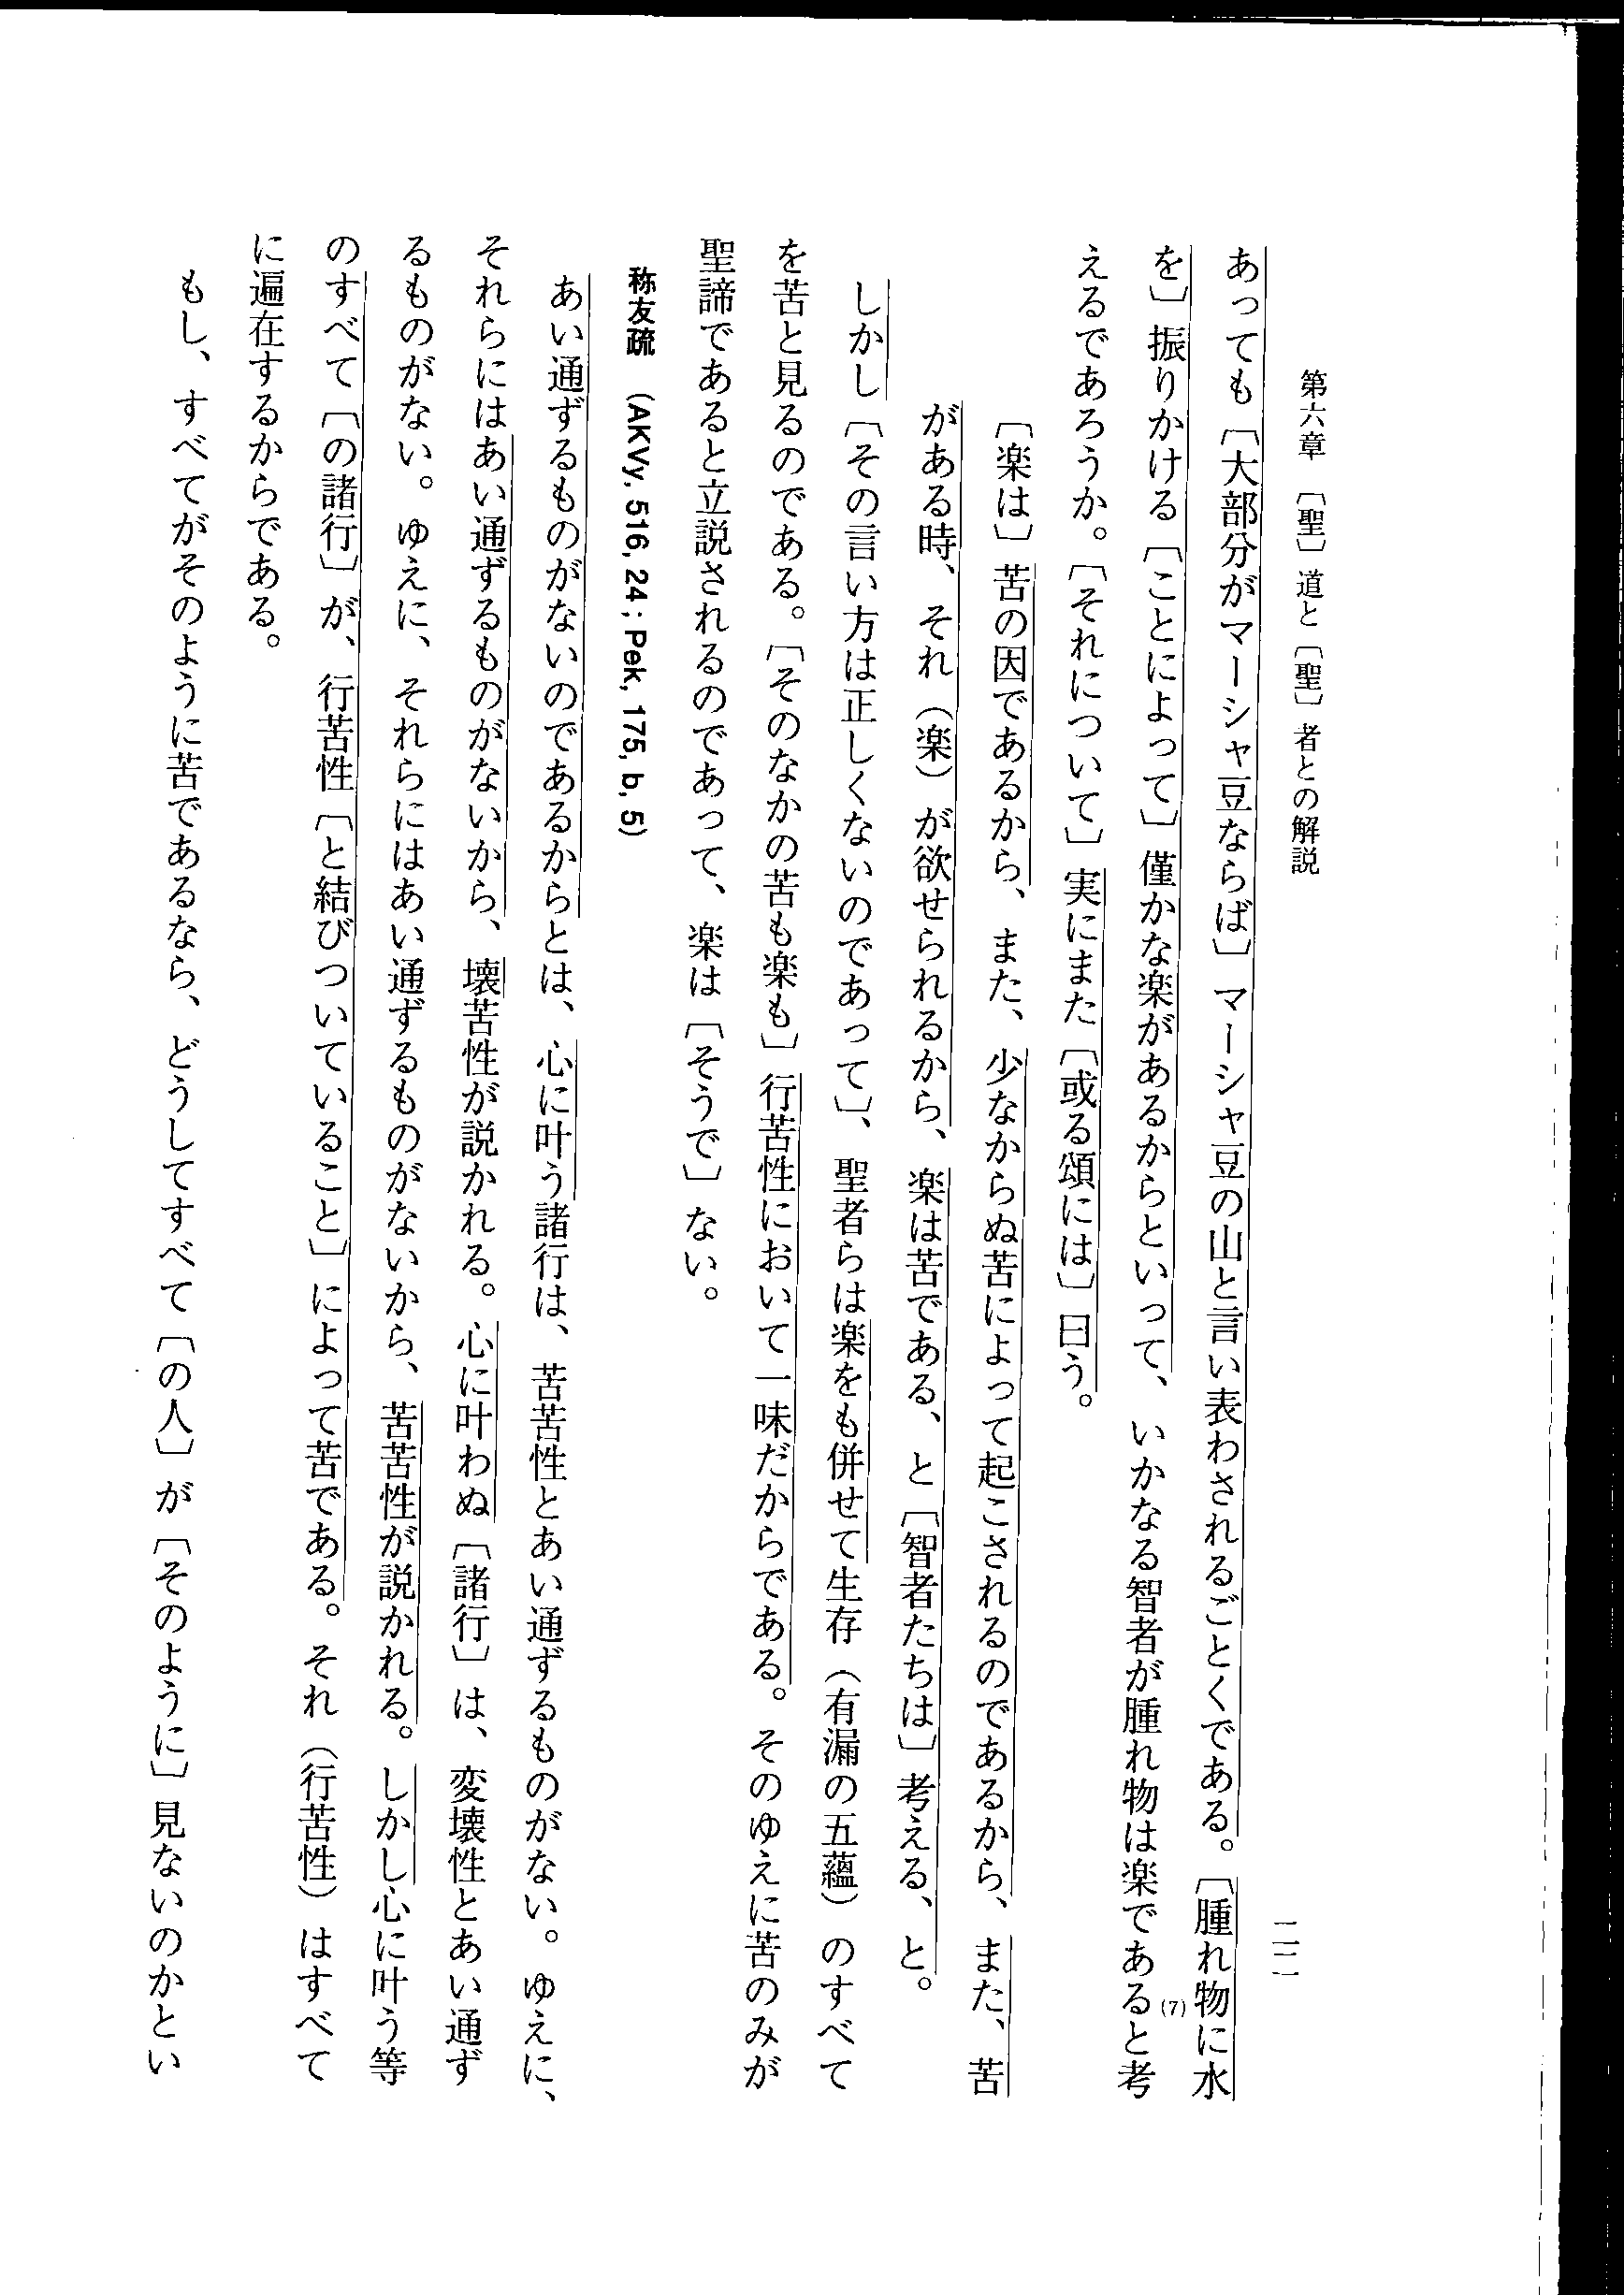 第六章 〔聖〕道と〔聖〕者との解説
二二
あっても〔大部分がマーシャ豆ならば〕マーシャ豆の山と言い表わされるごとくである。〔腫れ物に水
を〕振りかける〔ことによって〕僅かな楽があるからといって、いかなる智者が腫れ物は楽であると考(7)
えるであろうか。〔それについて〕実にまた〔或る頌には〕曰う。
〔楽は〕苦の因であるから、また、少なからぬ苦によって起こされるのであるから、また、苦
がある時、それ（楽）が欲せられるから、楽は苦である、と〔智者たちは〕考える、と。
しかし〔その言い方は正しくないのであって〕、聖者らは楽をも併せて生存（有漏の五蘊）のすべて
を苦と見るのである。〔そのなかの苦も楽も〕行苦性において一味だからである。そのゆえに苦のみが
聖諦であると立説されるのであって、楽は〔そうで〕ない。
称友疏 (AKVy, 516, 24 ; Pek, 175, b, 5)
あい通ずるものがないのであるからとは、心に叶う諸行は、苦苦性とあい通ずるものがない。ゆえに、
それらにはあい通ずるものがないから、壊苦性が説かれる。心に叶わぬ〔諸行〕は、変壊性とあい通ず
るものがない。ゆえに、それらにはあい通ずるものがないから、苦苦性が説かれる。しかし心に叶う等
のすべて〔の諸行〕が、行苦性〔と結びついていること〕によって苦である。それ（行苦性）はすべて
に遍在するからである。
もし、すべてがそのように苦であるなら、どうしてすべて〔の人〕が〔そのように〕見ないのかとい